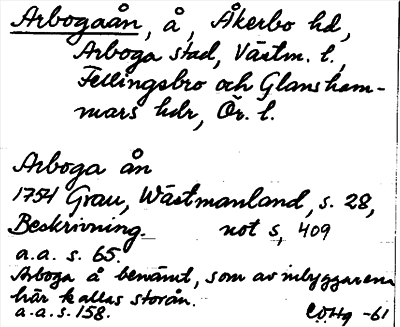 Arbogaån, å, Åkerbo hd,
Arboga stad, Västm. l.,
Fellingsbro och Glansham-
mars hdr, Ör. l.
Arboga ån
1754 Grau, Wästmanland, s. 28,
Beskrivning. not s, 409
a.a. s. 65.
Arboga å benämt, som av inbyggarena
här kallas storån.
a.a.s. 158. -61